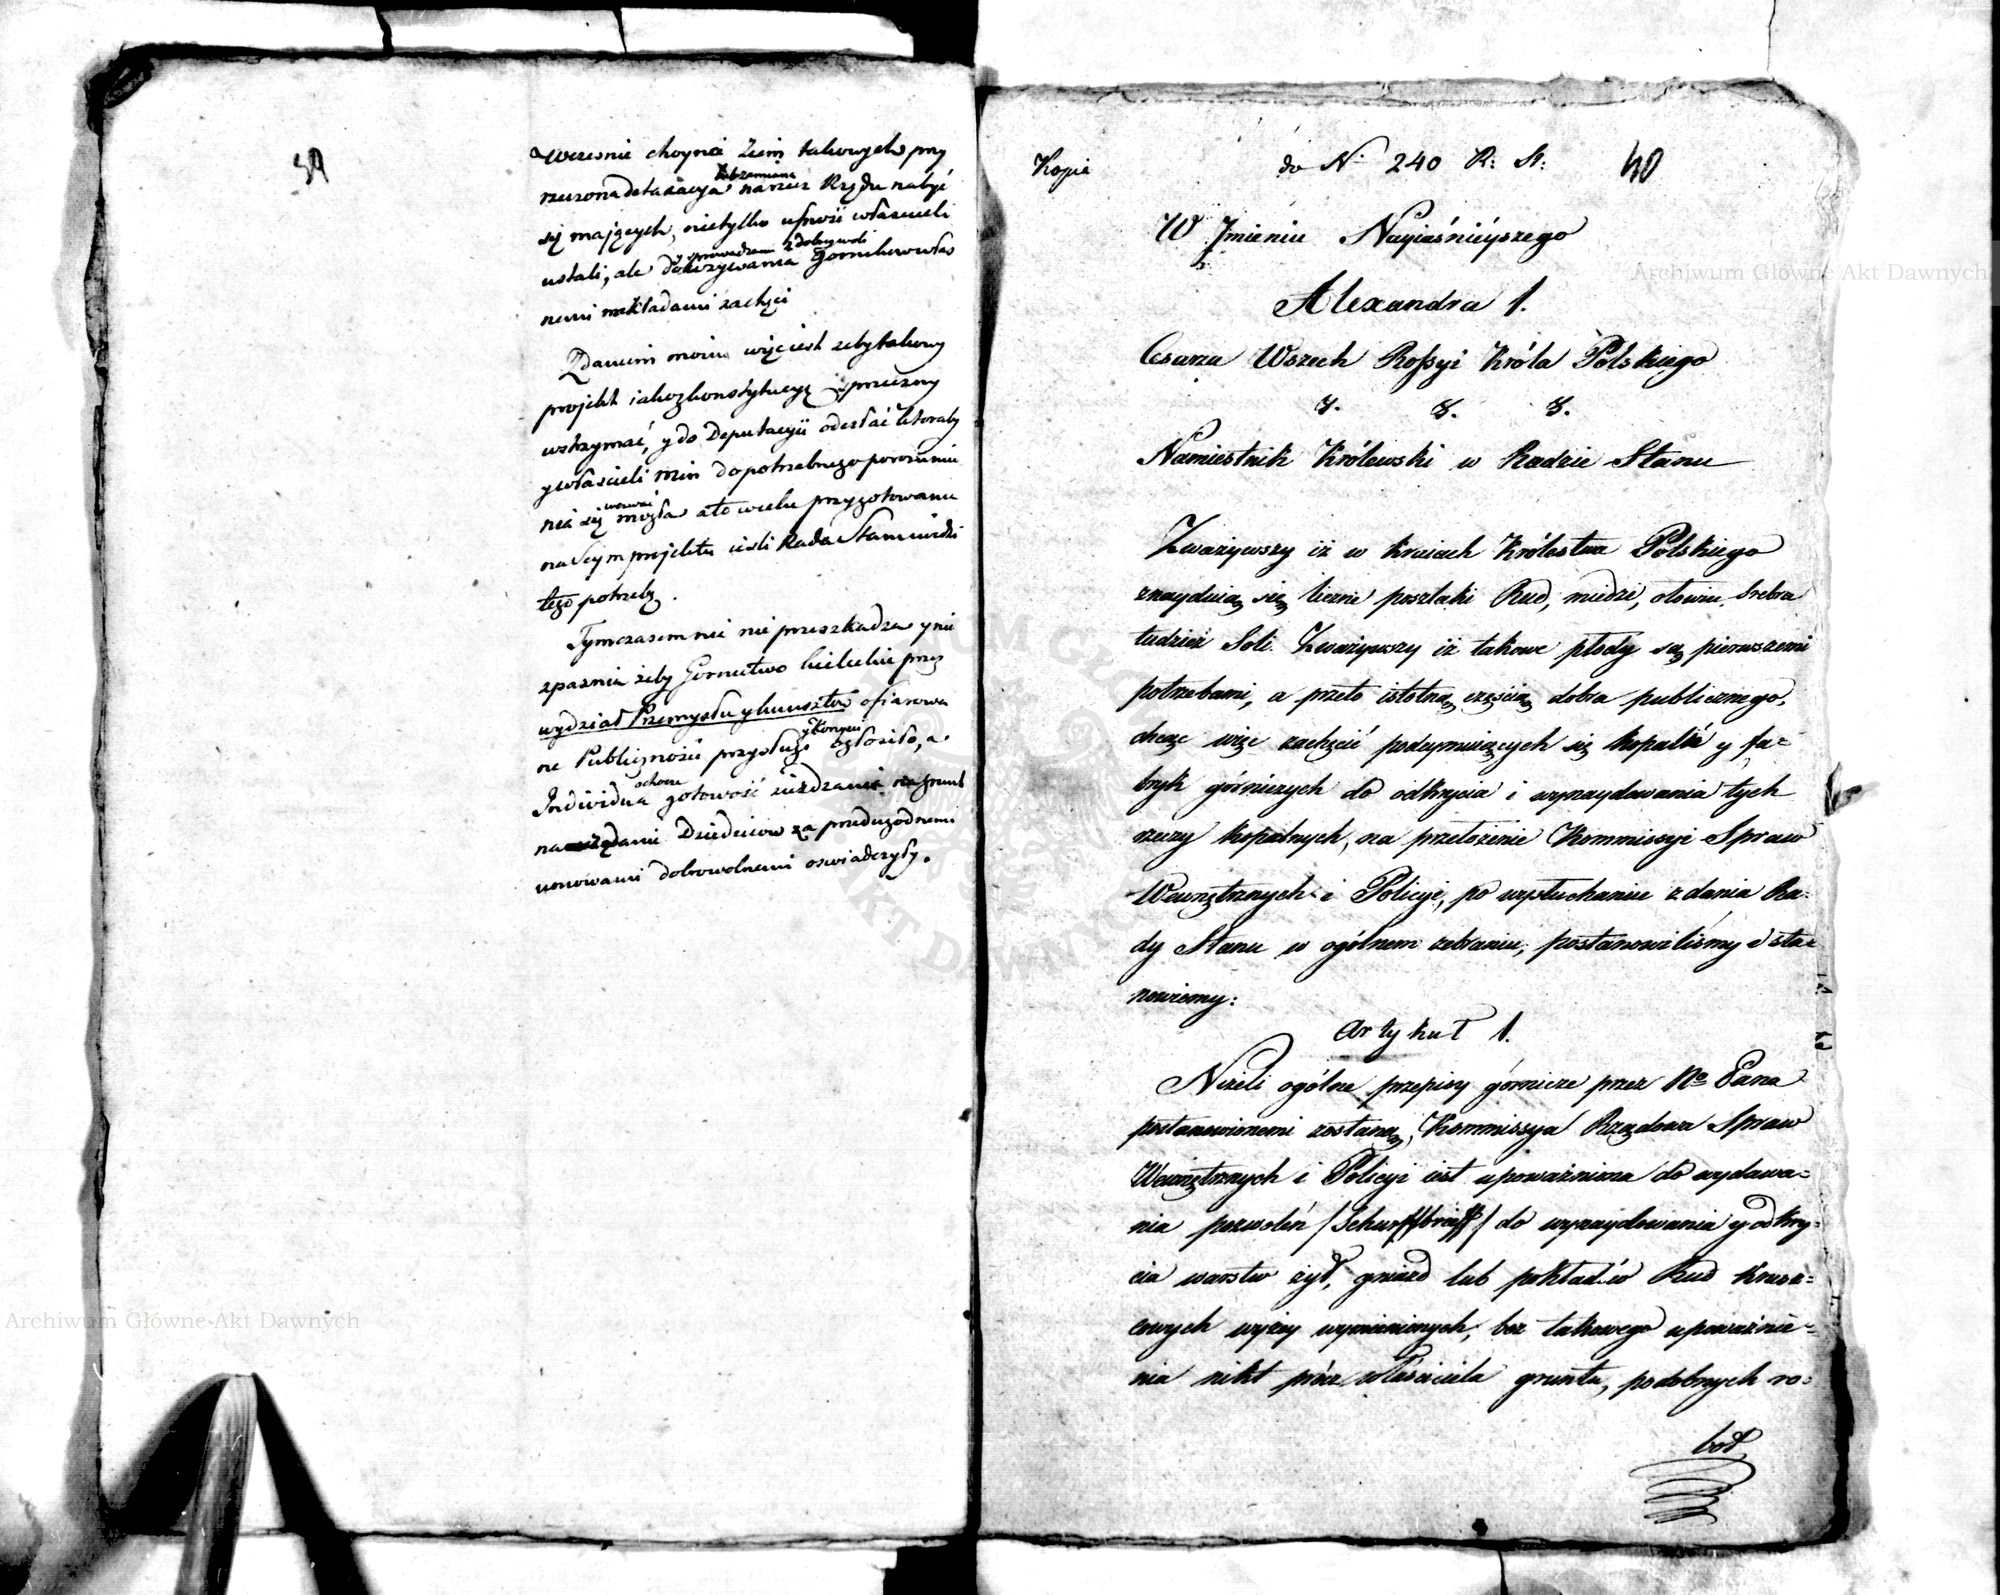 39
wczesnie choynie Ziem takowych przy
rzeczona detaxacya na rzecz Rządu nabyć
się maiących, nietylko ufność właścicieli
ustali, ale
nemi nakładami zachęci
Zdaniem moim więc iest zeby takowy
projekt iako z konstytucyą sprzeczny
wstrzymać, y do Deputacyi odesłać ktoraby
y właścicieli min do potrzebnego porozumie
nia się mogła ato w celu przygotowania
na Seym projektu iesli Rada Stanu widzi
tego potrzebę.
Tymczasem nic nie przeszkadza y nie
zpaznia zeby Gornictwo kieleckie przez
wydział Przemysłu y kunsztow ofiarowa
ne Publiczności przysługi ogłosiło, a
Individua gotowość ziezdzania na grunt
na żądanie Dziedzicow za przedugodnemi
umowami dobrowolnemi oswiadczyły.
Kopia do N. 240 R: St: 40
W Jmieniu Nayiaśnieyszego
Alexandra 1.
Cesarza Wszech Rossyi Króla Polskiego
&. &. &.
Namiestnik Królewski w Radzie Stanu
Zważywszy iż w kraiach Królestwa Polskiego
znayduią się liczne poszlaki Rud, miedzi, ołowiu, srebra
tudzież Soli. Zważywszy iż takowe płody są pierwszemi
potrzebami, a przeto istotną częścią dobra publicznego,
chcąc więc zachęcić podeymuiących się kopalń y fa=
bryk górniczych do odkrycia i wynaydowania tych
rzeczy kopalnych, na przełożenie Kommissyi Spraw
Wewnętrznych i Policyi, po wysłuchaniu zdania Ra=
dy Stanu w ogólnem zebraniu, postanowiliśmy i sta=
nowiemy:
Artykuł 1.
Niżeli ogólne przepisy górnicze przez Nco Pana
postanowionemi zostaną, Kommissya Rządowa Spraw
Wewnętrznych i Policyi iest upoważniona do wydawa=
nia pozwoleń /Schurffbrieff/ do wynaydowania y odkry=
cia warstw żył, gniazd lub pokładów Rud krusz=
cowych wyżey wymienionych, bez takowego upoważnie=
nia nikt prócz właściciela gruntu, podobnych ro=
bót
Archiwum Główne Akt Dawnych
Archiwum Główne Akt Dawnych